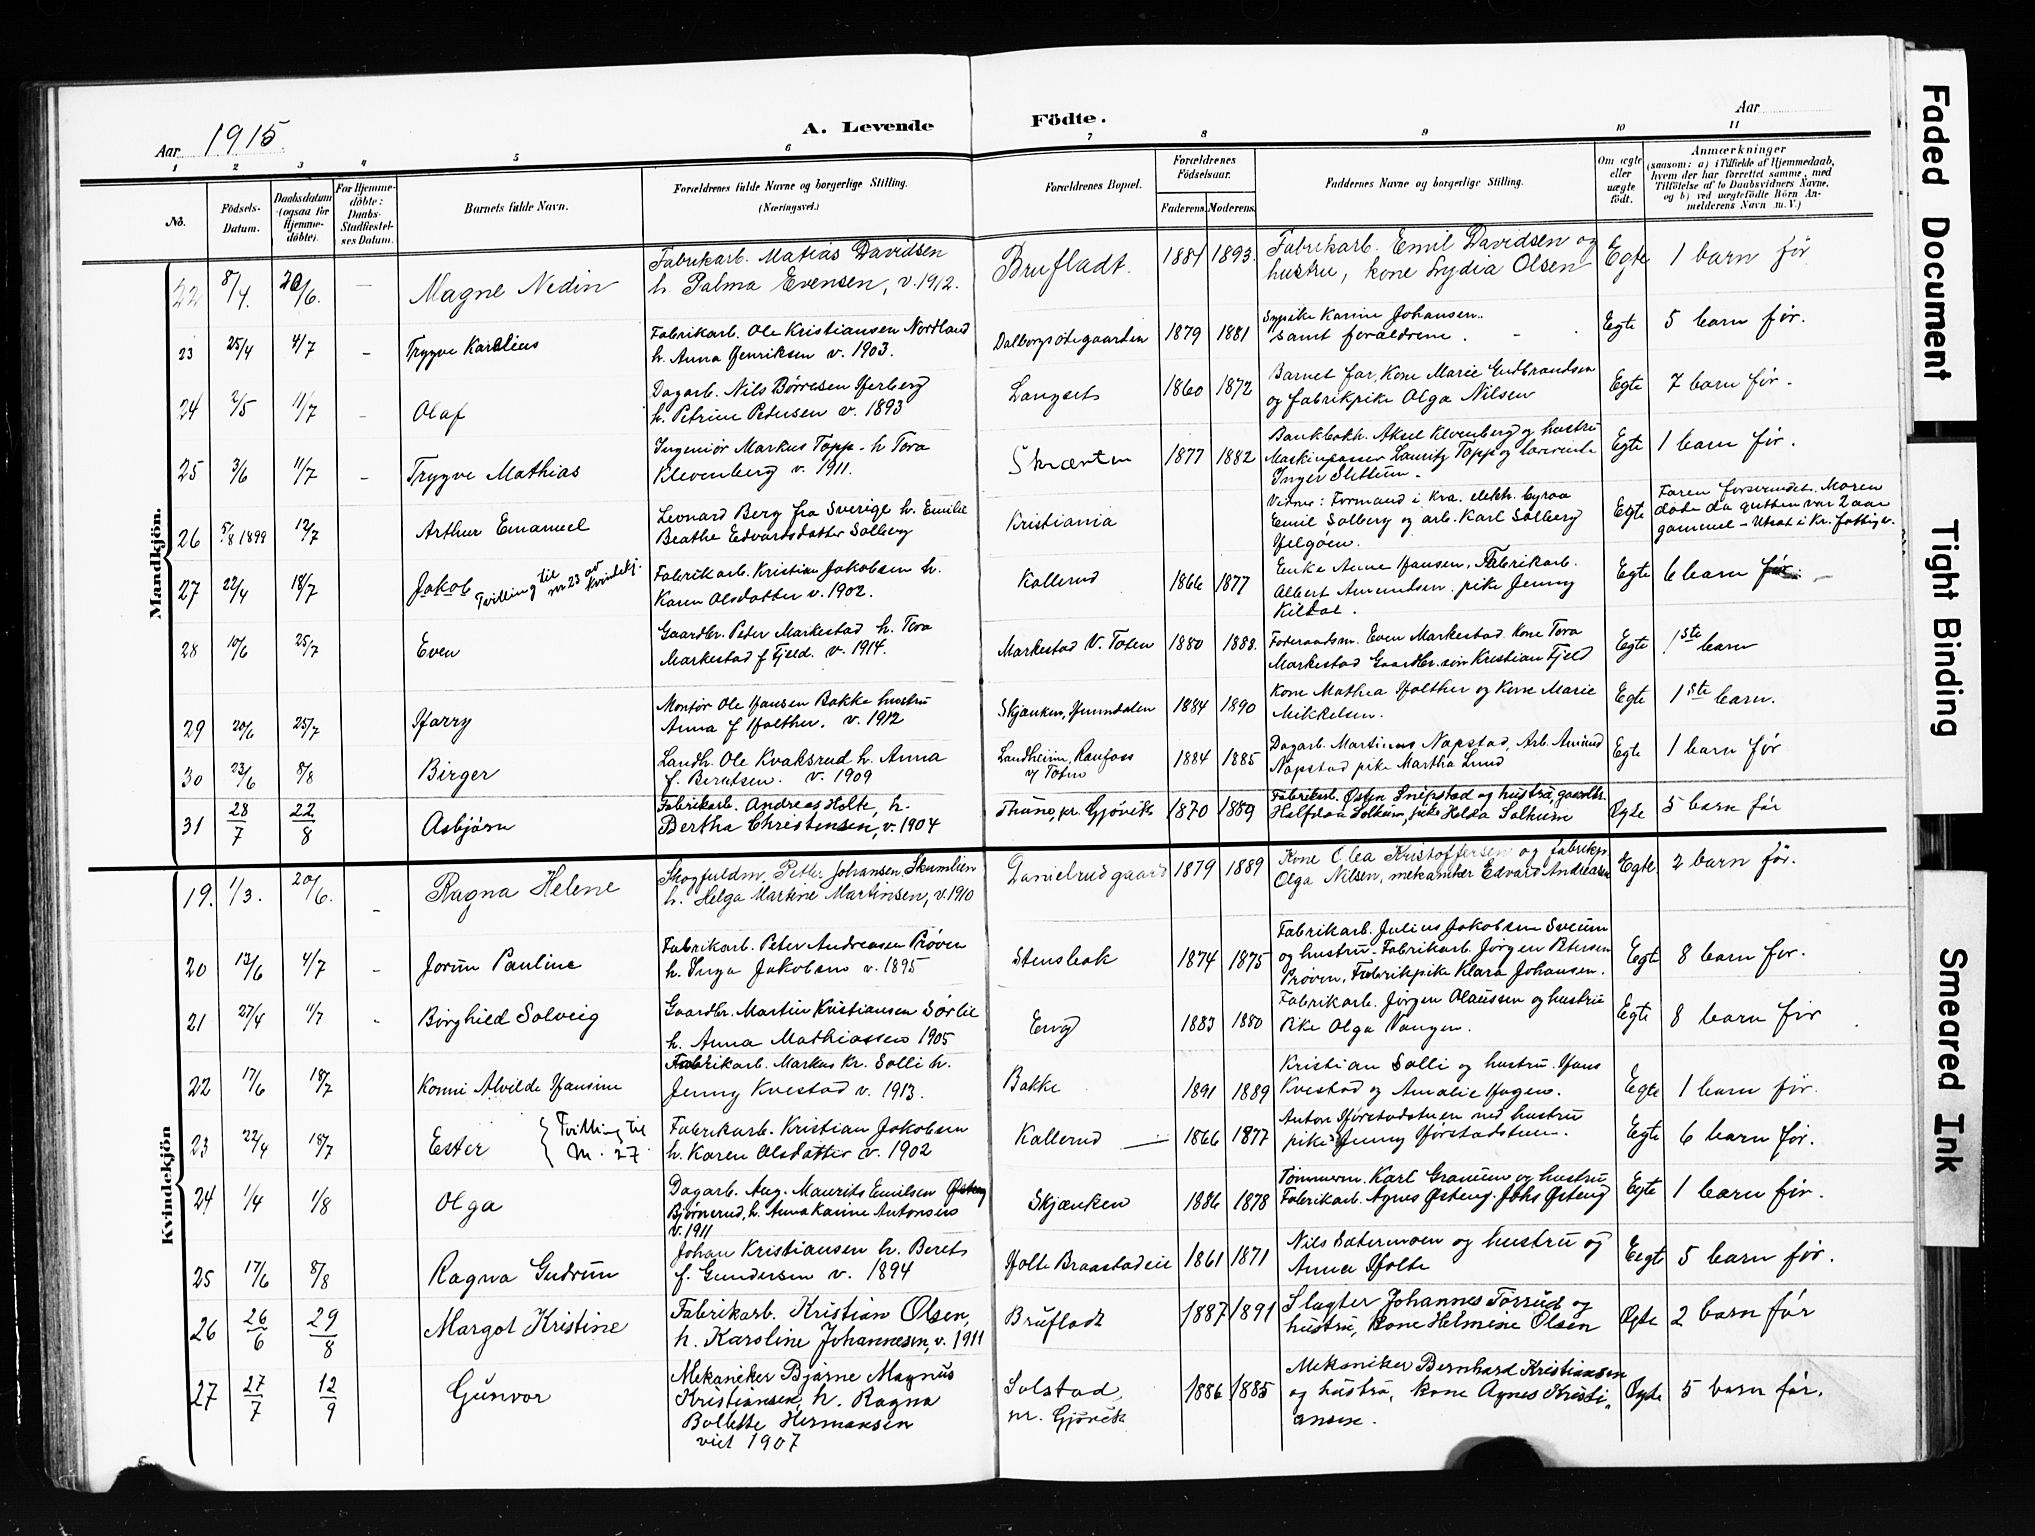 Aar 1915.
A. Levende Födte.
Aar
1 2 3 4 5 6 7 8 9 10 11
No.
Födsels-Datum.
Daabsdatum (ogsaa for Hjemme-döbte).
For Hjemme-döbte: Daabs-Stadfæstel-ses Datum.
Barnets fulde Navn.
Forældrenes fulde Navne og borgerlige Stilling. (Næringsvei.)
Forældrenes Bopæl.
Forældrenes Födselsaar.
Faderens. Moderens.
Faddernes Navne og borgerlige Stilling.
Om ægte eller uægte født.
Anmærkninger
(saasom: a) i Tilfælde af Hjemmedaab, hvem der har forrettet samme, med Tilføielse af to Daabsvidners Navne, og b) ved uægtefödte Börn An-melderens Navn m. V.)
Mandkjön.
22 8/4. 20/6. — Magne Nedin
Fabrikarb. Matias Davidsen
h. Palma Evensen, v. 1912.
Brufladt. 1881 1893.
Fabrikarb. Emil Davidsen og
hustru, kone Lydia Olsen
Egte 1 barn før
23 25/4 4/7 – Trygve Karelius
Fabrikarb. Ole Kristiansen Nordland
h. Anna Henriksen v. 1903.
Dalborgsötegaarden 1879 1881
Sypike Karine Johansen..
samt forældrene.
Egte 5 barn før.
24 2/5 11/7 – Olaf
Dagarb. Nils Börresen Herberg
h. Petrine Pedersen v. 1893
Langset 1860 1872
Barnet far, Kone Marie Gudbrandsen
og fabrikpike Olga Nilsen
Egte 7 barn før.
25 3/6 11/7 – Trygve Mathias
Ingeniør Markus Topp. h Tora
Klevenberg v. 1911.
Skrærten 1877 1882
Bankbokh. Aksel Klevenberg og hustru
Maskinpasser Lauritz Topp og lærerinde
Inger Slettum.
Egte 1 barn før.
26 5/8 1899 12/7 Arthur Emanuel
Leonard Berg fra Sverige h. Emilie
Beathe Edvardsdatter Solberg
Kristiania
Vidner: Formand i Kra. elektr. byraa
Emil Solberg og arb. Karl Solberg
Helgöen.
Egte
Faren forsvundet. Moren
døde da gutten var 2 aar
gammel – Utsat i Kr. fattigv.
27 22/4 18/7 Jakob Tvilling til nr 23 av kvindekj.
Fabrikarb. Kristian Jakobsen h.
Karen Olsdatter v. 1902.
Kallerud 1866 1877
Enke Anne Hansen, Fabrikarb.
Albert Amundsen. pike Jenny
Kildal.
Egte 6 barn før.
28 10/6 25/7 Even
Gaardbr. Peter Markestad h. Tora
Markestad f Fjeld. v. 1914.
Markestad V. Toten 1880 1888.
Föderaadsm. Even Markestad. Kone Tora
Markestad Gaardbr. søn Kristian Fjeld
Egte 1ste barn
29 20/6 25/7 Harry
Montør Ole Hansen Bakke hustru
Anna f Holther. v. 1912
Skjænken, Hunndalen 1884 1890
Kone Mathea Holther og Kone Marie
Mikkelsen.
Egte 1ste barn.
30 23/6 8/8 Birger
Landh. Ole Kvaksrud h. Anna
f. Berntsen. v. 1909
Landheim, Raufoss
V Toten 1884 1885
Dagarb. Martinus Napstad, Arb. Amund
Napstad pike Martha Lund
Egte 1 barn før
31 28/7 22/8 Asbjørn
Fabrikarb. Andreas Holte, h.
Bertha Christensen, v. 1904
Thune, pr. Gjövik 1870 1889
Fabrikarb. Østen Snipstad og hustru, gaardbr.
Halfdan Solheim, pike Helda Solheim
Egte 5 barn før
Kvindekjön
19. 1/3. 20/6. – Ragna Helene
Skogfuldm. Petter Johansen Skumlien
h. Helga Martine Martinsen, v. 1910
Danielrudgaard 1879 1889
Kone Olea Kristoffersen og fabrikp.
Olga Nilsen, mekaniker Edvard Andreasen
Egte. 2 barn för.
20 13/6 4/7 – Jorun Pauline
Fabrikarb. Peter Andreasen Prøven
h. Inga Jakobsen v. 1895
Stensbak 1874 1875
Fabrikarb. Julius Jakobsen Sveum
og hustru. Fabrikarb. Jørgen Petersen
Prøven, Fabrikpike Klara Johansen.
Egte 8 barn før.
21 27/4 11/7 - Borghild Solveig
Gaardbr. Martin Kristiansen Sørlie
h. Anna Mathiassen 1905
Eng 1883 1880
Fabrikarb. Jörgen Olaussen og hustru
Pike Olga Vangen.
Egte 8 barn før
22 17/6 18/7 Konni Alvilde Hansine
Fabrikarb. Markus Kr. Solli h.
Jenny Kvestad v. 1913.
Bakke 1891 1889
Kristian Solli og hustru. Hans
Kvestad og Amalie Hagen.
Egte 1 barn før.
23 22/4 18/7 Ester { Tvilling til M. 27.
Fabrikarb. Kristian Jakobsen
h. Karen Olsdatter v. 1902
Kallerud — 1866 1877
Anton Hørstadstuen med hustru
pike Jenny Hørstadstuen.
Egte 6 barn før.
24 1/4 1/8 Olga
Dagarb. Aug. Maurits Emilsen Østeng
Bjørnerud, h. Anna Karine Antonsen
v. 1911
Skjænken 1886 1878
Tømmerm. Karl Granum og hustru
Fabrikarb. Agnes Østeng. Johs Østeng
Egte 1 barn før.
25 17/6 8/8 Ragna Gudrun
Johan Kristiansen h. Beret
f. Gundersen v. 1894
Holte Braastadeie 1861 1871
Nils Sætermoen og hustru og
Anna Holte
Eegte 5 barn før.
26 26/6 29/8 Margot Kristine
Fabrikarb. Kristian Olsen,
h. Karoline Johannesen, v. 1911
Brufladt 1887 1891
Slagter Johannes Torrud og
hustru, kone Helmine Olsen
Egte 2 barn før
27 27/7 12/9 Gunvor
Mekaniker Bjarne Magnus
Kristiansen, h. Ragna
Bollette Hermansen
viet 1907
Solstad,
nr. Gjövik 1886 1885
Mekaniker Bernhard Kristiansen
og hustru, kone Agnes Kristi-
ansen.
Egte 5 barn før.
Faded Document
Tight Binding
Smeared Ink